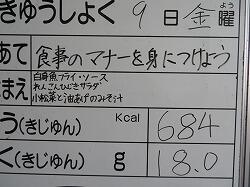 きゅうしょく 9日 金曜
よう
あて 食事のマナーを身につけよう
まえ 白身魚フライ・ソース
れんこんひじきサラダ
小松菜と油あげのみそ汁
う(きじゅん) Kcal 684
く(きじゅん) g 18.0